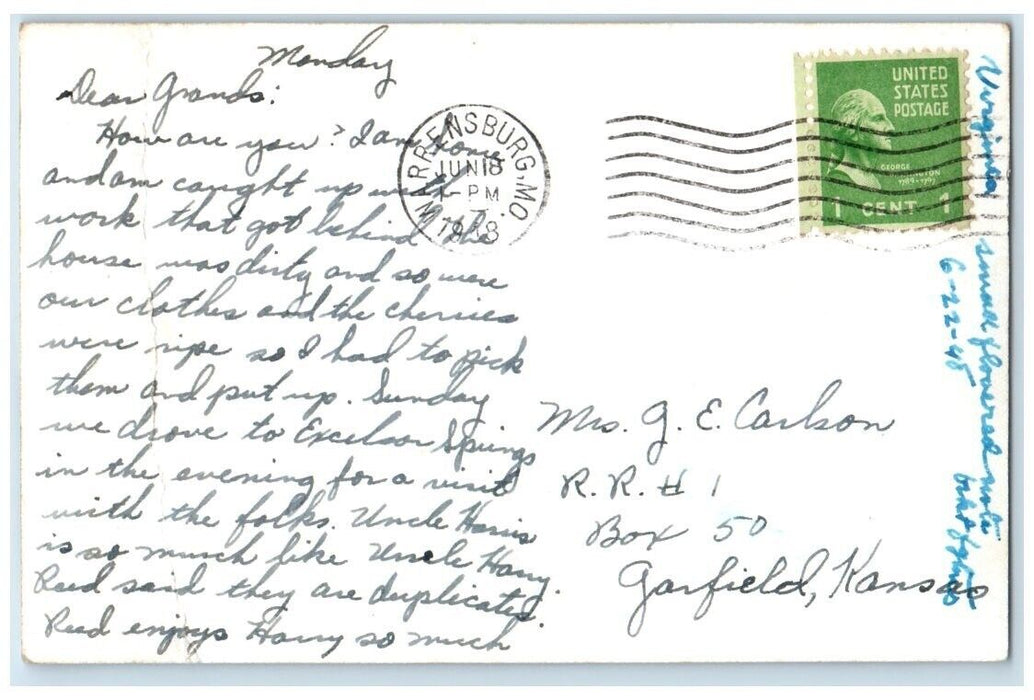 Monday
Dear Grands:
How are you? I am home
and am caught up with
work that got behind. The
house was dirty and so were
our clothes and the cherries
were ripe so I had to pick
them and put up. Sunday
we drove to Excelsor Springs
in the evening for a visit
with the folks. Uncle Harris
is so much like Uncle Harry.
Reed said they are duplicates.
Reed enjoys Harry so much
WARRENSBURG, MO.
JUN 18
1 - PM
1948
UNITED
STATES
POSTAGE
GEORGE
WASHINGTON
1789-1797
1 CENT 1
Mrs. G. E. Carlson
R. R. # 1
Box 50
Garfield, Kansas
Virginia
small flowered
6-22-48